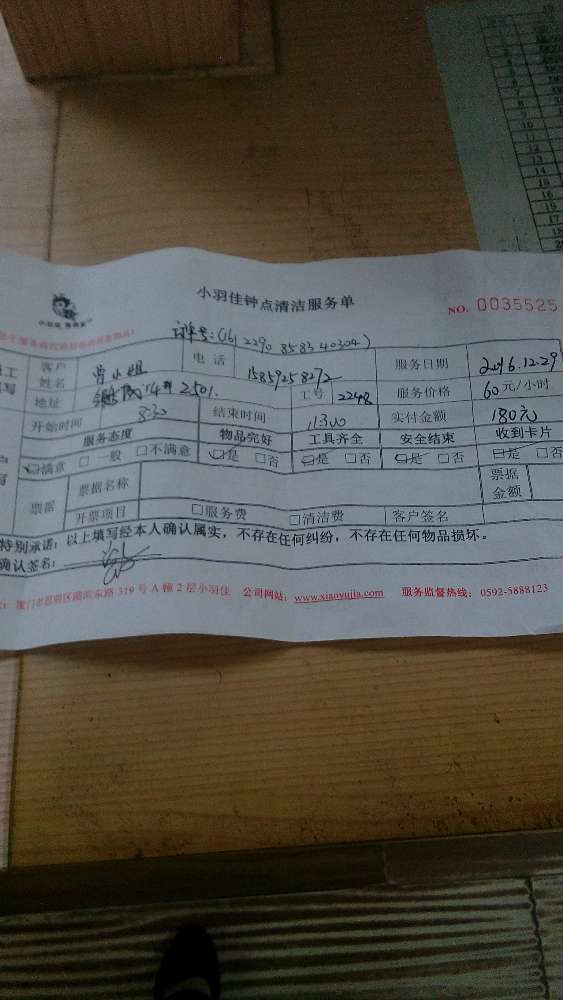 小羽佳钟点清洁服务单
NO. 0035525
订单号:(161229085834 0304)
客户姓名 曾小姐 电话 15859258272 服务日期 2016.12.29
地址 14# 2501. 工号 2248 服务价格 60元/小时
开始时间 8:30 结束时间 11:30 实付金额 180元
服务态度 物品完好 工具齐全 安全结束 收到卡片
☑满意 □一般 □不满意 ☑是 □否 ☑是 □否 ☑是 □否 ☑是 □否
票据 票据名称 票据金额
开票项目 □服务费 □清洁费 客户签名
特别承诺:以上填写经本人确认属实,不存在任何纠纷,不存在任何物品损坏。
确认签名:
厦门市思明区湖滨东路 319 号 A 幢 2 层小羽佳 公司网站:www.xiaoyujia.com 服务监督热线:0592-5888123